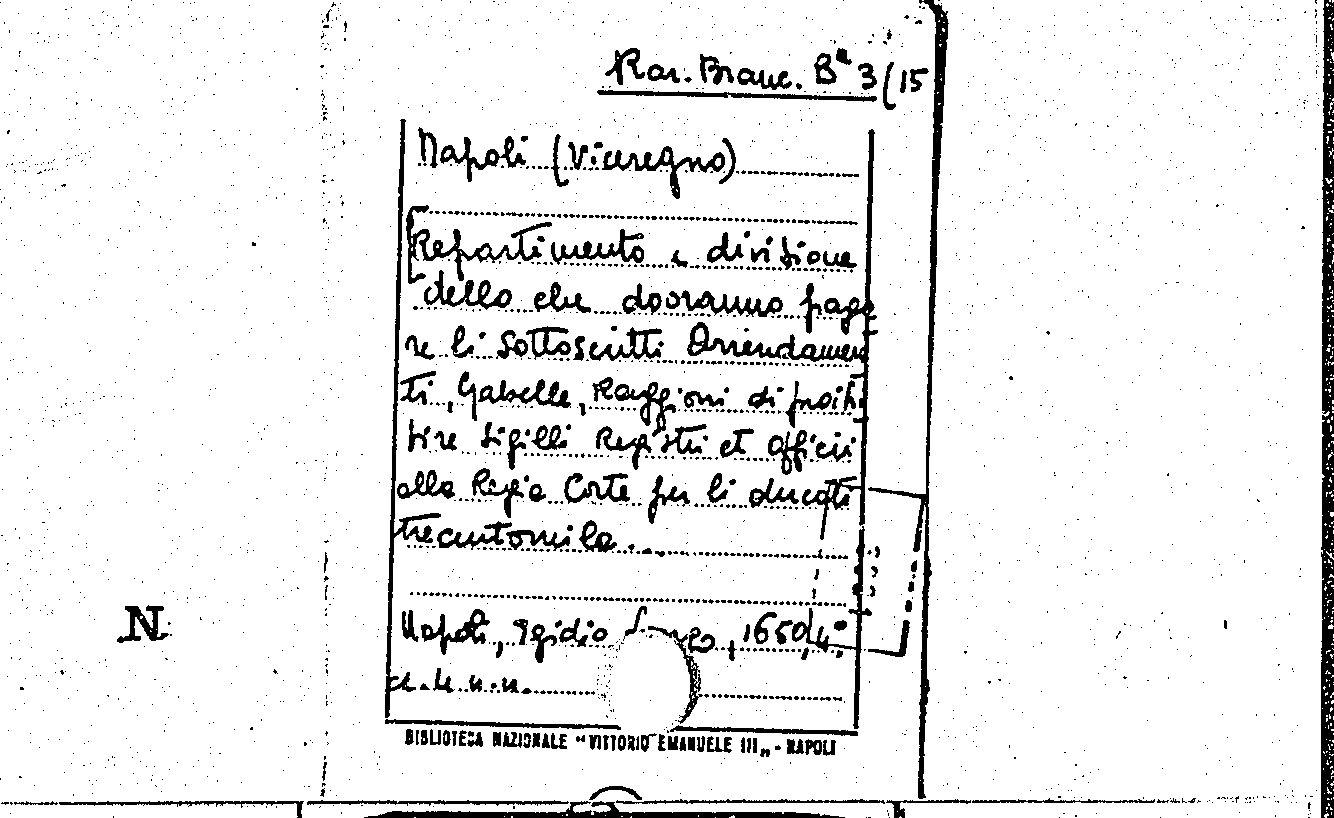 Rar. Branc. Bª 3(15
Napoli (Viceregno)
[Repartimento e divisione
dello che dovranno paga
re li sottoscritti Arrendamen
ti, Gabelle, Raggioni di proihi
bire sigilli Registri et officii
alla Regia Corte per li ducati
trecentomila...
N
Napoli, Egidio 1650, 4°
c.n.n.
BIBLIOTECA NAZIONALE "VITTORIO EMANUELE III„ - NAPOLI